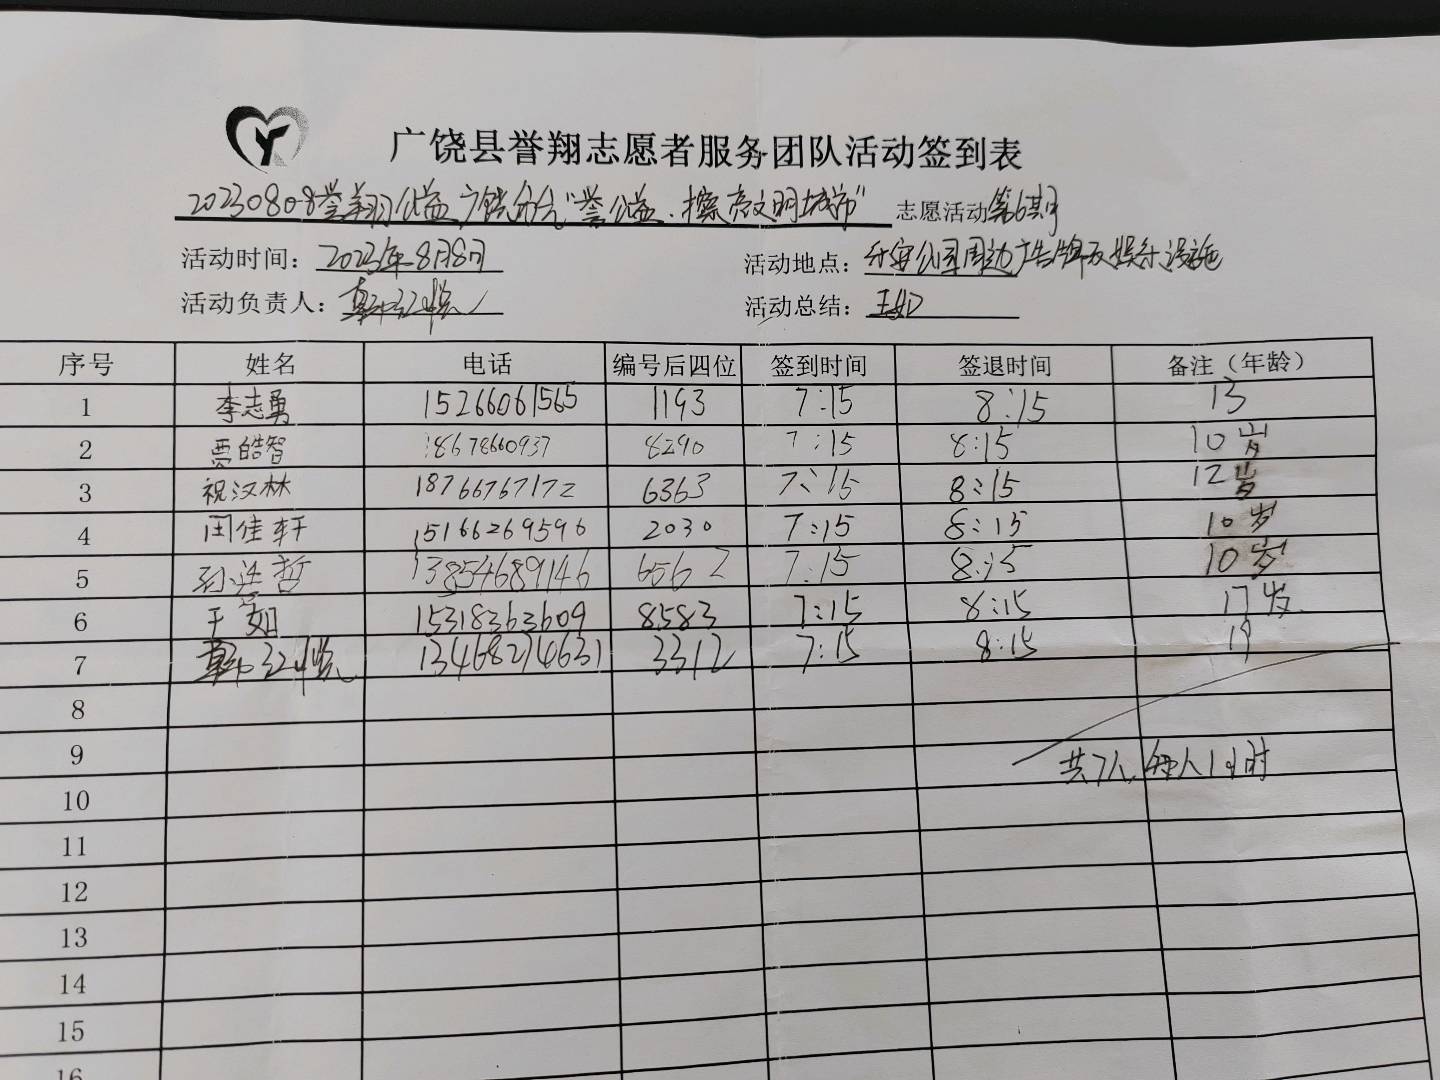 广饶县誉翔志愿者服务团队活动签到表
20230808誉翔公益广饶分台“誉公益·擦亮文明城市” 志愿活动第6期
活动时间：2023年8月8日 活动地点：公园周边广告牌及娱乐设施
活动负责人：韩红悦 活动总结：王如
序号 姓名 电话 编号后四位 签到时间 签退时间 备注（年龄）
1 李志勇 15266061565 1193 7:15 8:15 13
2 贾皓智 18678660937 8290 7:15 8:15 10岁
3 祝汉林 18766767172 6363 7:15 8:15 12岁
4 闫佳轩 15166269596 2030 7:15 8:15 10岁
5 孙浩哲 13854689146 6562 7:15 8:15 10岁
6 王如 15318363609 8583 7:15 8:15 17岁
7 13468214631 3312 7:15 8:15 19
8
9 共7人，每人1小时
10
11
12
13
14
15
16